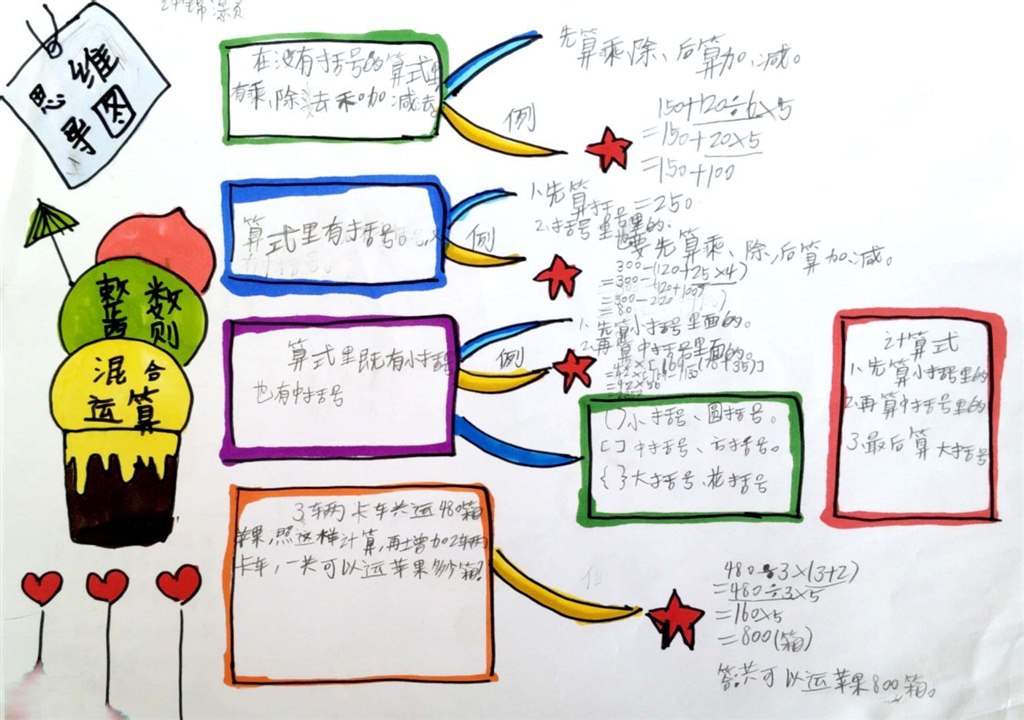 思维
导图
整数
则
混合
运算
在没有括号的算式里
有乘、除法和加、减法
先算乘、除、后算加、减。
例
150+120÷6×5
=150+20×5
=150+100
=250
算式里有括号
1、先算括号里的
2、括号里
也要先算乘、除,后算加、减。
例
300-(120+25×4)
=300-(120+100)
=300-220
=80
算式里既有小括号
也有中括号
例
1、先算小括号里面的。
2、再算中括号里面的。
()小括号、圆括号。
[]中括号、方括号。
{}大括号、花括号
计算式
1、先算小括号里的
2、再算中括号里的
3、最后算大括号
3车两卡车共运480箱
苹果,照这样计算,再增加2车两
卡车,一共可以运苹果多少箱?
480÷3×(3+2)
=480÷3×5
=160×5
=800(箱)
答:共可以运苹果800箱。